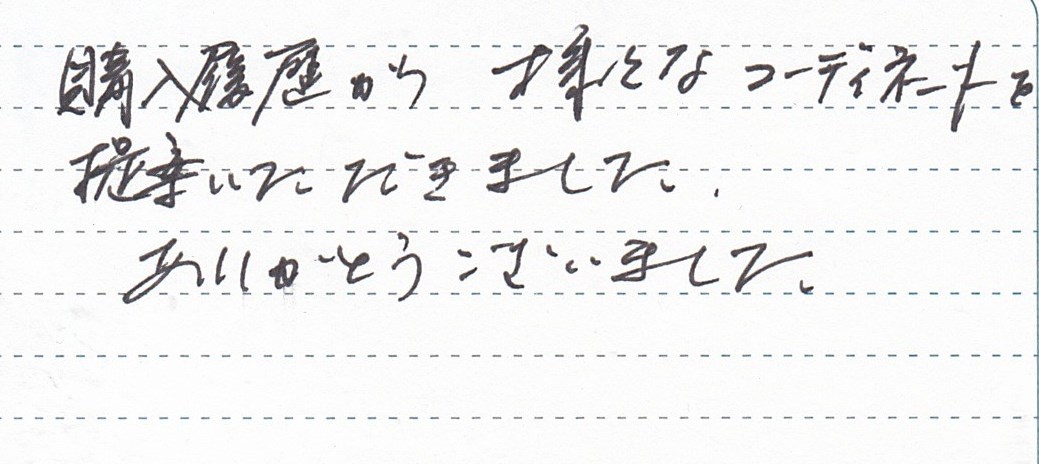 購入履歴から 様々なコーディネートを
提案いただきました。
ありがとうございました。